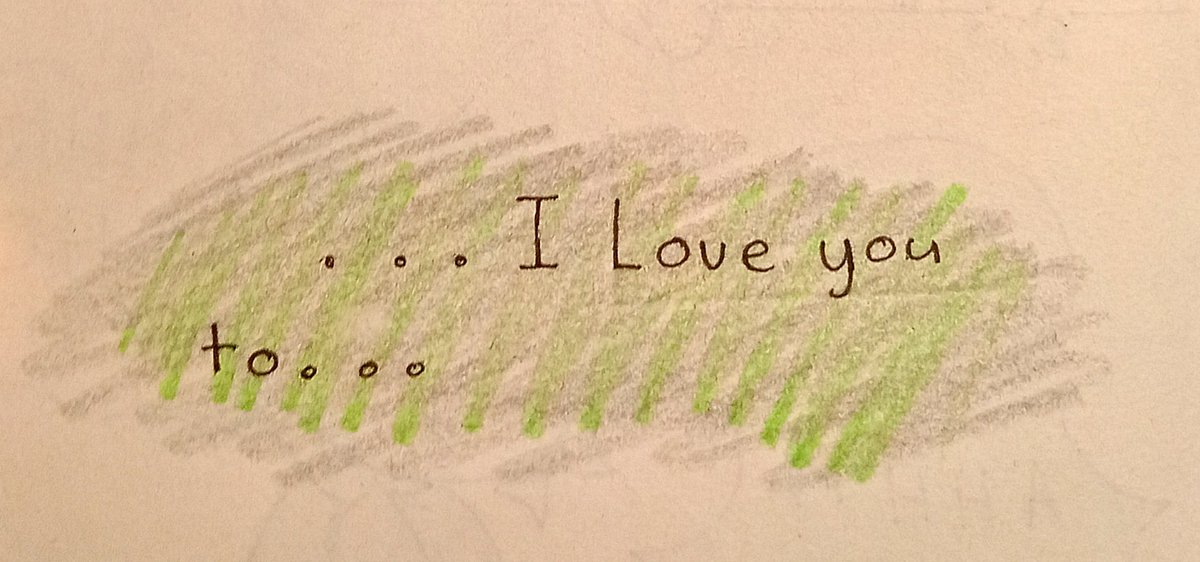 ...I Love you
to...